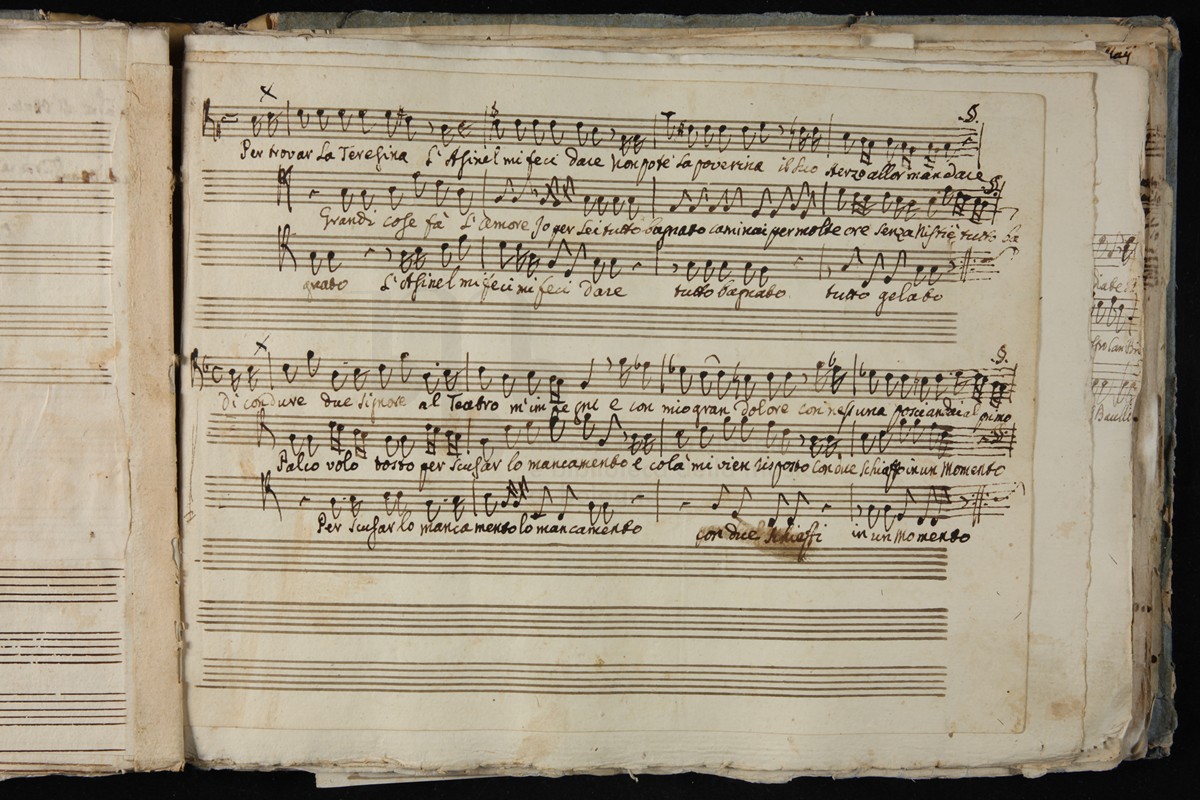 Per trovar La Teresina L'Asinel mi feci dare non pote La poverina il suo sterzo allor mandare
Grandi cose fà L'Amore Jo per Lei tutto bagnato caminai per molte ore senza tutto ba
gnato L'Asinel mi feci mi feci dare tutto bagnato tutto gelato
Di condure due Signore al Teatro m'impegni e con mio gran dolore con nessuna poscia andai al primo
Palco volo tosto per scusar lo mancamento e colà mi vien risposto con due schiaffi in un Momento
Per scusar lo mancamento lo mancamento con due schiaffi in un Momento